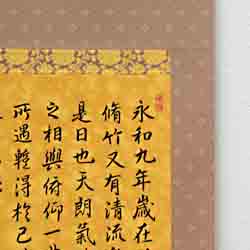 永和九年歲在
脩竹又有清流
是日也天朗氣
之相與俯仰一
所遇得於己